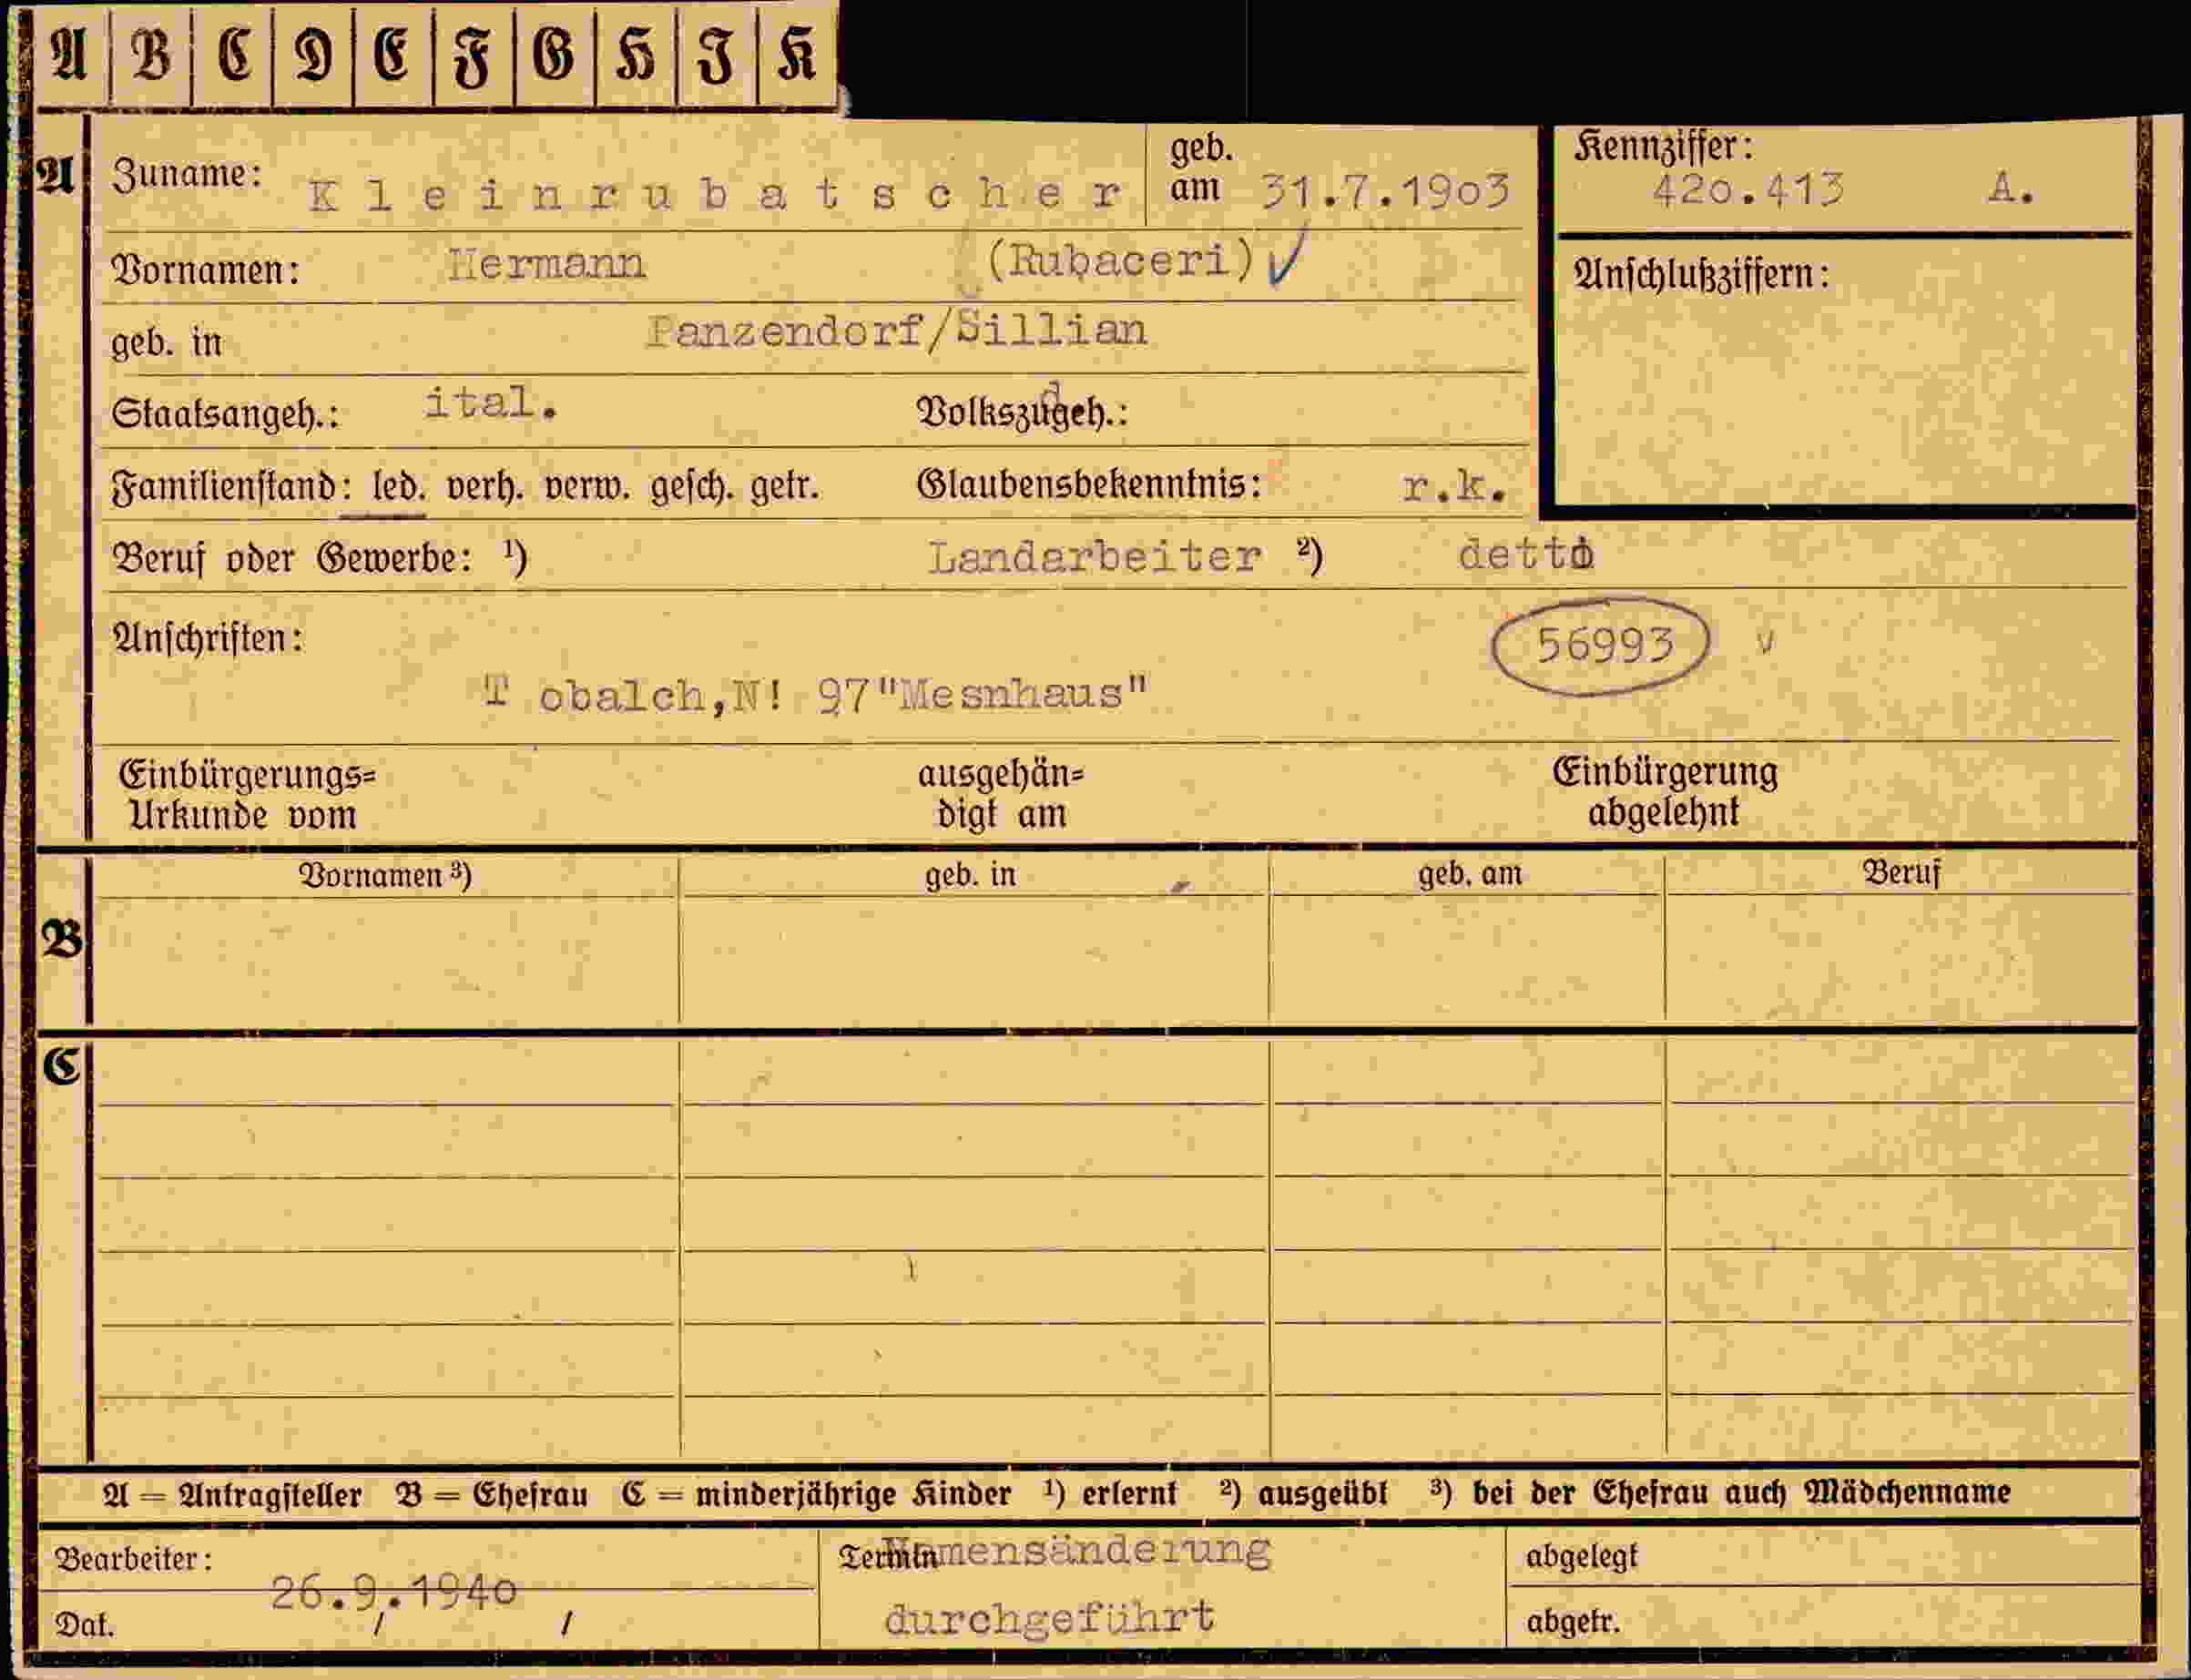 A B C D E F G H J K
A Zuname: Kleinrubatscher geb. am 31.7.1903 Kennziffer: 420.413 A.
Vornamen: Hermann (Rubaceri) ✓ Anschlußziffern:
geb. in Panzendorf/Sillian
Staatsangeh.: ital. Volkszugeh.: d
Familienstand: led. verh. verw. gesch. getr. Glaubensbekenntnis: r.k.
Beruf oder Gewerbe: ¹) Landarbeiter ²) detto
Anschriften: 56993 v
T obalch,N! 97"Mesnhaus"
Einbürgerungs= ausgehän= Einbürgerung
Urkunde vom digt am abgelehnt
Vornamen ³) geb. in geb. am Beruf
B
C
A = Antragsteller B = Ehefrau C = minderjährige Kinder ¹) erlernt ²) ausgeübt ³) bei der Ehefrau auch Mädchenname
Bearbeiter: Termin Namensänderung abgelegt
26.9.1940
Dat. / / durchgeführt abgetr.